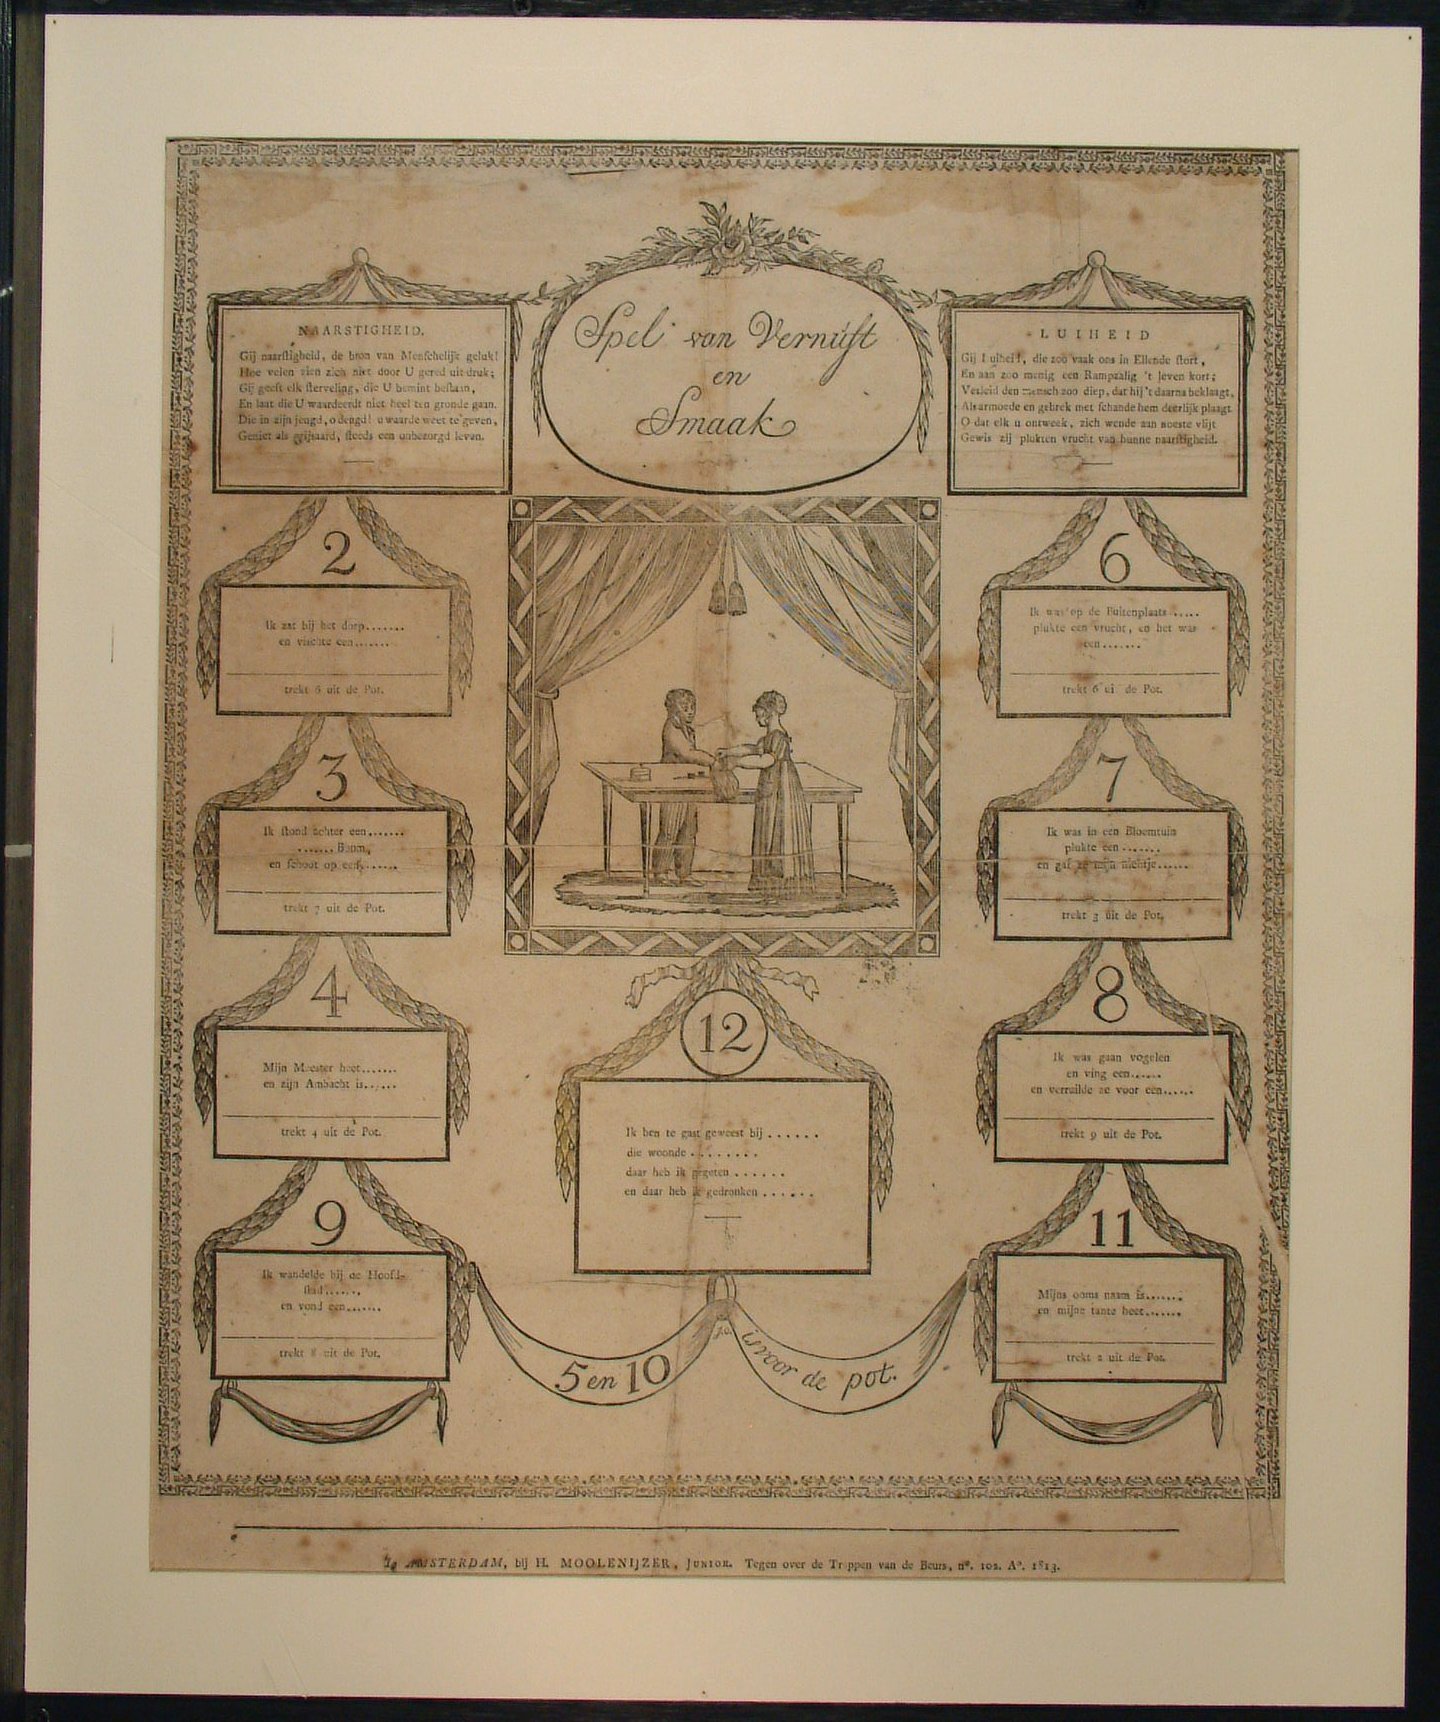 Spel van Vernuft
en
Smaak
NAARSTIGHEID.
Gij naarstigheid, de bron van Menschelijk geluk!
Hoe velen zien zich niet door U gered uit druk;
Gij geeft elk sterveling, die U bemint bestaan,
En laat die U waardeerdt niet heel ten gronde gaan.
Die in zijn jeugd, o deugd! u waarde weet te geven,
Geniet als grijsaard, steeds een onbezorgd leven.
LUIHEID
Gij Luiheid, die zoo vaak ons in Ellende stort,
En aan zoo menig een Rampzalig 't leven kort;
Verleid den mensch zoo diep, dat hij 't daarna beklaagt,
Als armoede en gebrek met schande hem deerlijk plaagt
O dat elk u ontweek, zich wende aan noeste vlijt
Gewis zij plukten vrucht van hunne naarstigheid.
2
Ik zat bij het dorp.......
en vischte een.......
trekt 6 uit de Pot.
3
Ik stond achter een.......
.......Boom,
en schoot op een.......
trekt 7 uit de Pot.
4
Mijn Meester heet.......
en zijn Ambacht is......
trekt 4 uit de Pot.
9
Ik wandelde bij de Hoofd-
stad......,
en vond een.......
trekt 8 uit de Pot.
6
Ik was op de Buitenplaats.....
plukte een vrucht, en het was
een.......
trekt 6 ui de Pot.
7
Ik was in een Bloemtuin
plukte een.......
en gaf ze mijn nichtje......
trekt 3 uit de Pot.
8
Ik was gaan vogelen
en ving een......
en verruilde ze voor een......
trekt 9 uit de Pot.
11
Mijns ooms naam is.......
en mijne tante heet.......
trekt 2 uit de Pot.
12
Ik ben te gast geweest bij ......
die woonde ........
daar heb ik gegeten ......
en daar heb ik gedronken ......
5 en 10
is voor de pot.
Te AMSTERDAM, bij H. MOOLENIJZER, JUNIOR. Tegen over de Trappen van de Beurs, nº. 102. Aº. 1813.